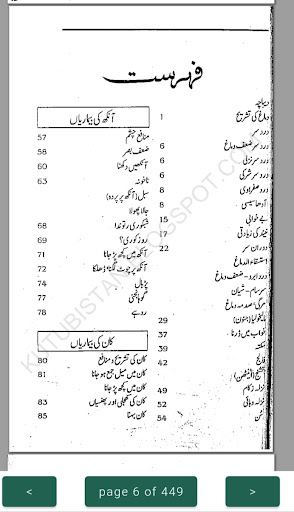 فہرست
دیباچہ
دماغ کی تشریح 1
درد سر
درد سر ضعف دماغ 6
درد سر نزلی 6
درد سر شرکی 6
درد صفراوی 8
آدھا سیسی 8
بے خوابی 15
نیند کی زیادتی 17
دوران سر 22
استسقاء الدماغ
درد ابرو - ضعف دماغ
سرسام - نسیان
مرگی صدمہ دماغ
مالیخولیا (جنون) 29
خواب میں ڈرنا 37
سکتہ 39
فالج 42
تشنج (اینٹھن)
نزلہ زکام 49
نزلہ وبائی 52
سن 54
آنکھ کی بیماریاں
منافع چشم 57
ضعف بصر 58
آنکھیں دکھنا 60
ناخونہ 63
سبل (آنکھ پر پردہ)
جالا پھولا
شبکوری رتوندا 68
روز کوری؟ 69
آنکھ میں کچھ پڑ جانا 71
آنکھ پر چوٹ لگنا ڈھلکا 72
پڑبال 74
گوہانجنی 77
روہے 78
کان کی بیماریاں
کان کی تشریح و منافع 80
کان میں میل جمع ہو جانا 81
کان میں کچھ پڑ جانا
کان کی کھجلی اور پھنسیاں 83
کان بہنا 85
KUTUBISTAN.BLOGSPOT.COM
< page 6 of 449 >